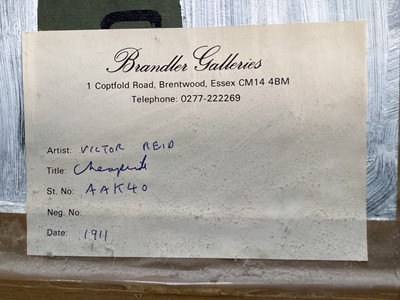 Brandler Galleries
1 Coptfold Road, Brentwood, Essex CM14 4BM
Telephone: 0277-222269
Artist: VICTOR REID
Title:
St. No: AAK40
Neg. No:
Date: 1911